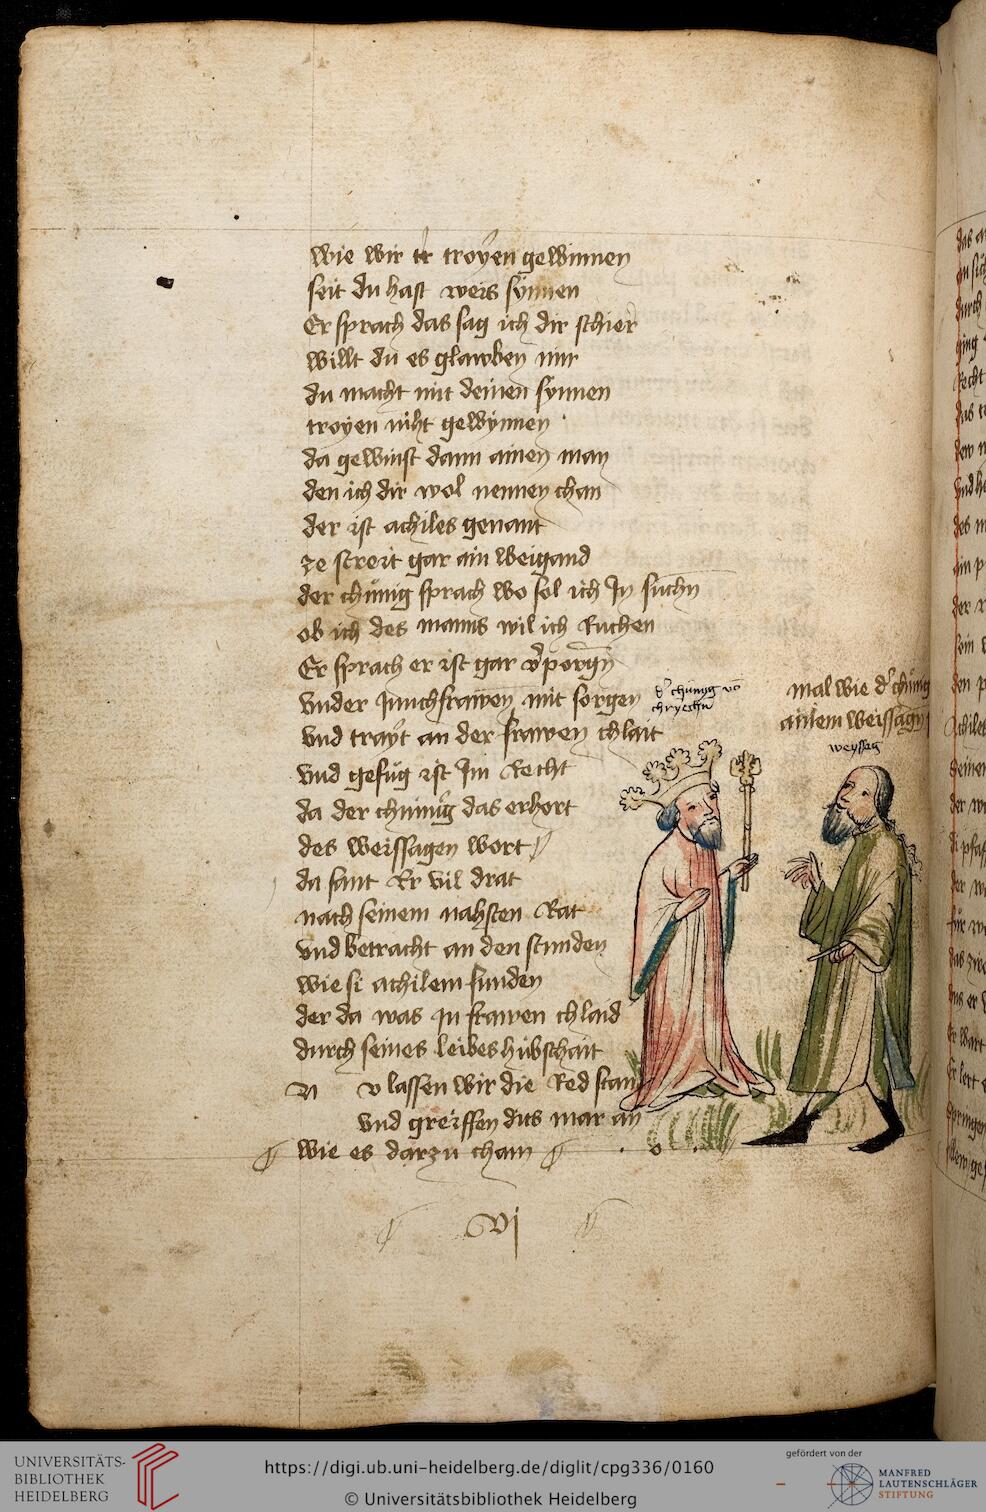 wie wir tr troyen gewinnen
seit du hast weis synnen
Er sprach das sag ich dir schier
willt du es glawben mir
du macht mit deinen synnen
troyen niht gewynnen
da gewinst dann ainen man
den ich dir wol nennen chan
der ist achiles genant
ze streit gar ain weigand
der chünig sprach wo sol ich Jn suchn
ob ich des manns wil ich Ruchen
Er sprach er ist gar vͤporgn
vnder junchfrawen mit sorgen
vnd trayt an der frawen chlait
vnd gefug ist Jm Recht
da der chünig das erhort
des weissagen wort
da sant Er vil drat
nach seinem nahsten Rat
vnd betracht an den stunden
wie si achilem funden
der da was Jn frawen chlaid
durch seines leibes hübschait
N v lassen wir die Red stan
vnd greiffen dits mar an
wie es darzu cham
vj
dͤ chüngg vō
chryechn
mal wie dͤ chünig
ainem weissagn
weyssag
UNIVERSITÄTS-
BIBLIOTHEK
HEIDELBERG
https://digi.ub.uni-heidelberg.de/diglit/cpg336/0160
© Universitätsbibliothek Heidelberg
gefördert von der
MANFRED
LAUTENSCHLÄGER
STIFTUNG